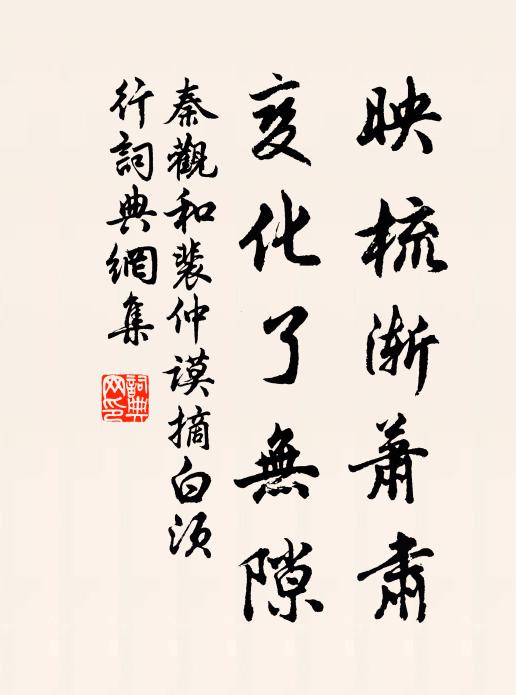 映梳漸蕭肅
変化了無隙
秦觀和裴仲謨摘白須
行詞典網集
詞典
网印